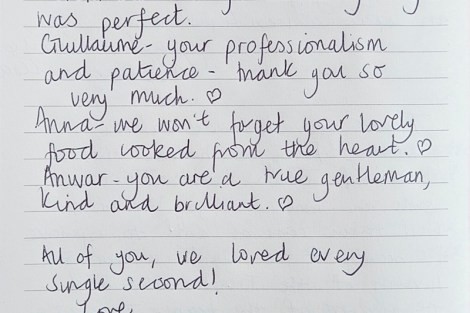 was perfect.
Guillaume - your professionalism
and patience - thank you so
very much. ♡
Anna - we won't forget your lovely
food cooked from the heart. ♡
Anwar - you are a true gentleman,
kind and brilliant. ♡
All of you, we loved every
single second!
Love,